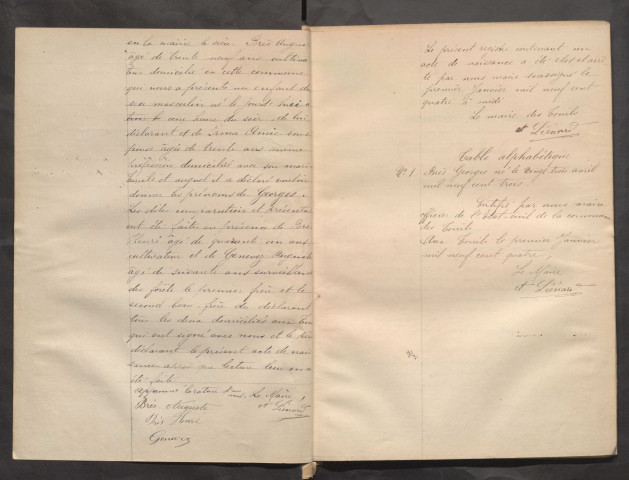 en la mairie le sieur Brès Auguste
âgé de trente neuf ans cultiva
teur domicilié en cette commune
qui nous a présenté un enfant du
sexe masculin né le jourd'hui à
cinq heures du soir de lui
déclarant et de Irma Amic son
épouse âgée de trente ans même
profession domiciliée avec son mari
et auquel il a déclaré vouloir
donner les prénoms de Georges.
Les dites comparution et présenta
ont été faites en présence de Brès
Henri âgé de quarante un ans
cultivateur et de Genovez Auguste
âgé de soixante ans surveillant
des forêts le premier frère et le
second beau frère du déclarant
tous les deux domiciliés aux
qui ont signé avec nous et le
déclarant le présent acte de nais
sance après que lecture leur en a
été faite
Le Maire,
Brès Auguste
Brès Henri
Genovez
Le présent registre contenant un
acte de naissance a été clos et arrê
té par nous maire soussigné le
premier Janvier mil neuf cent
quatre à midi
Le maire des Tourils
Table alphabétique
N° 1 Brès Georges né le vingt trois avril
mil neuf cent trois.
Certifié par nous maire
officier de l'état civil de la commune
des
Aux le premier Janvier
mil neuf cent quatre,
Le Maire